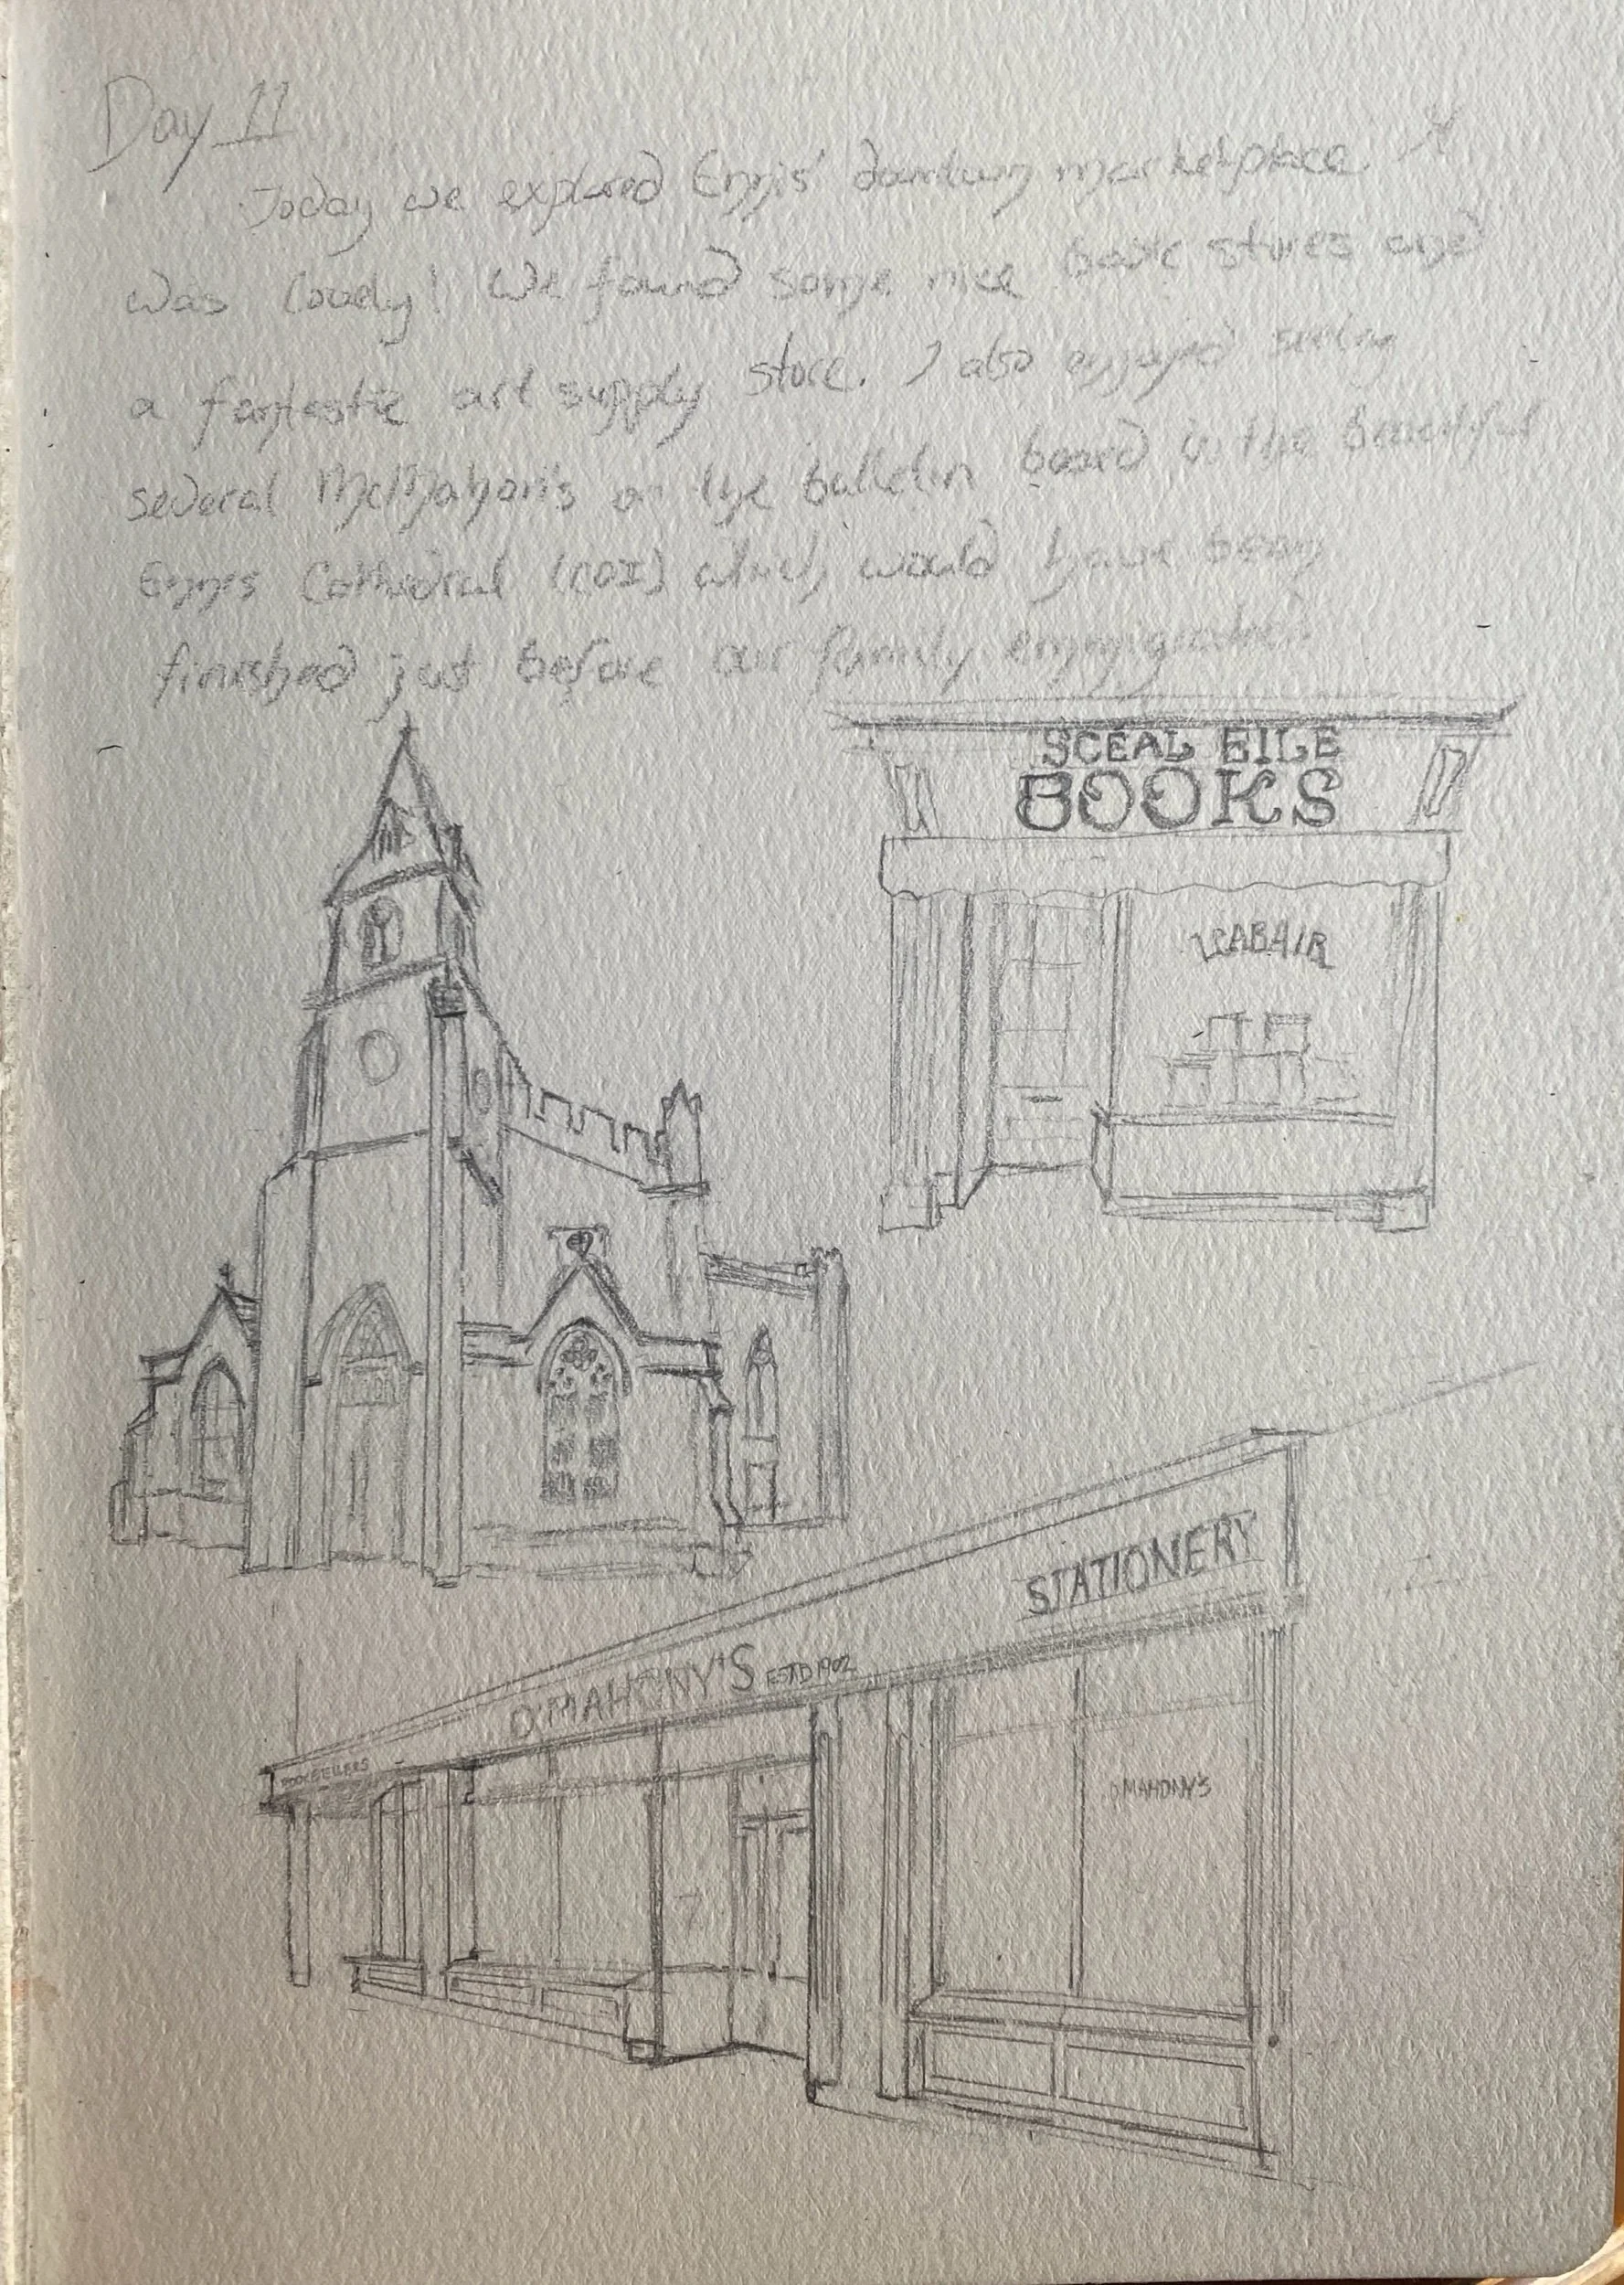 Day 11
Today we explored Ennis' downtown marketplace. It
was lovely! We found some nice book stores and
a fantastic art supply store. I also enjoyed seeing
several McMahon's on the bulletin board in the beautiful
Ennis Cathedral (COI) which would have been
finished just before our family emmigrated.
SCEAL EILE
BOOKS
LEABAIR
STATIONERY
O'MAHONY'S ESTD 1902
BOOKSELLERS
O'MAHONY'S
7